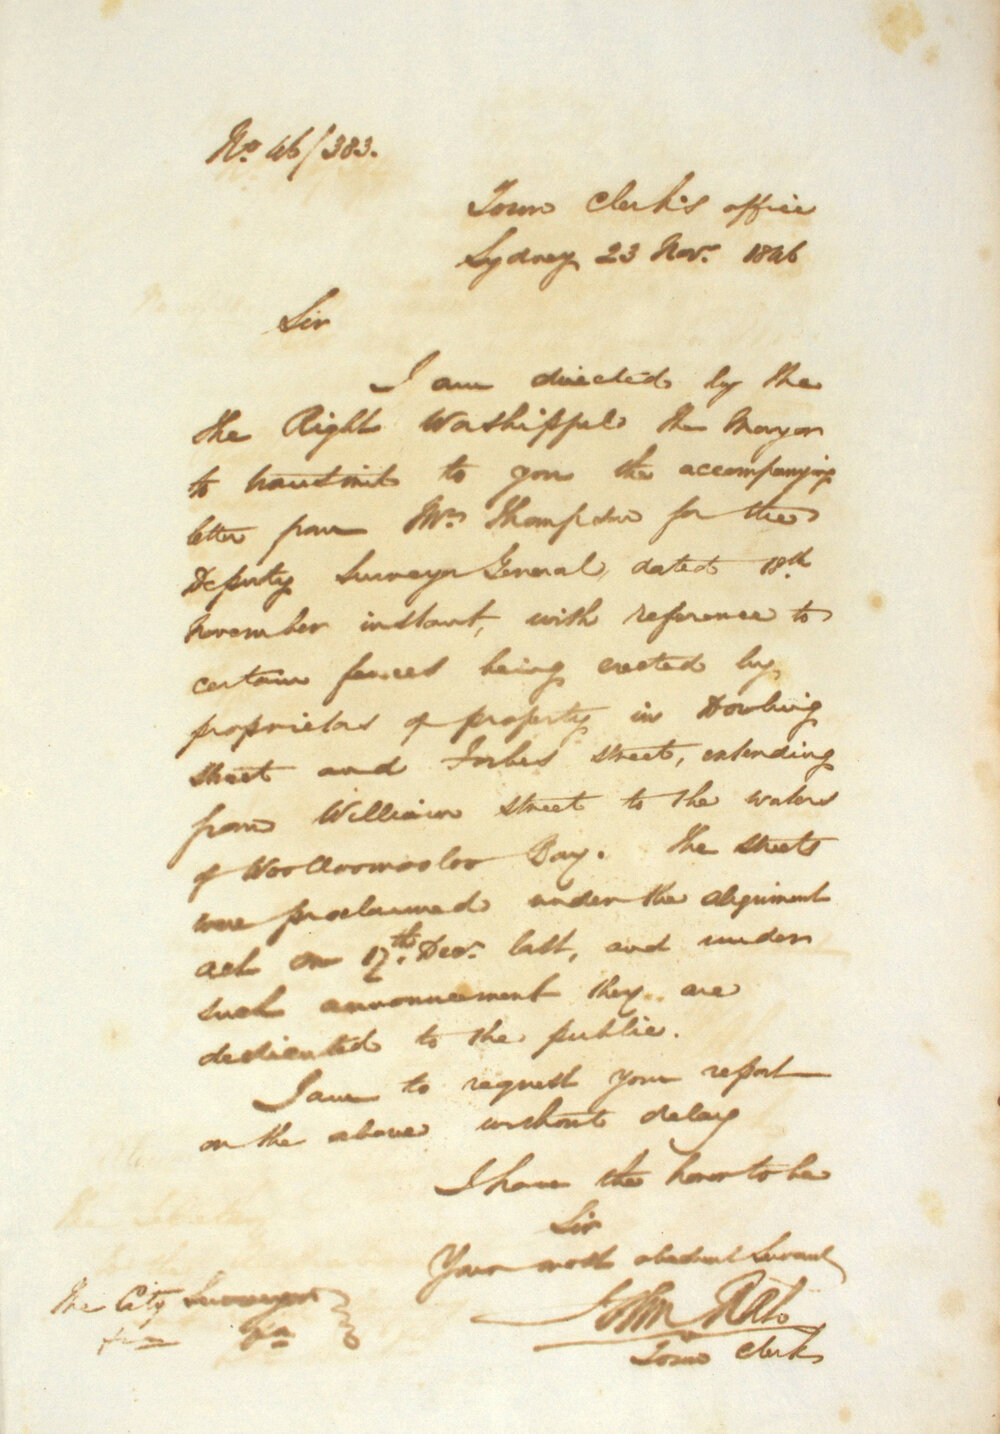 No. 46/383.
Town Clerk's office
Sydney 23 Nov. 1846
Sir
I am directed by the
the Right Worshipful the Mayor
to transmit to you the accompanying
letter from Mr. Thompson for the
Deputy Surveyor General, dated 18th
November instant, with reference to
certain fences being erected by
proprietors of property in Dowling
street and Forbes street, extending
from William street to the waters
of Woolloomooloo Bay. The streets
were proclaimed under the alignment
act on 17th. Decr. last, and under
such announcement they are
dedicated to the public.
I am to request your report
on the above without delay
I have the honor to be
Sir
Your most obedient Servant
John
Town Clerk
The City Surveyor